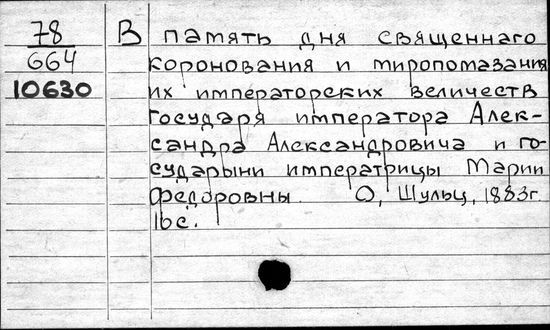 78
664
10630
В память дня священнаго
коронования и миропомазания
их императорских величеств
государя императора Алек-
сандра Александровича и го-
сударыни императрицы Марии
Федоровны. О, Шульц, 1883г.
16с.